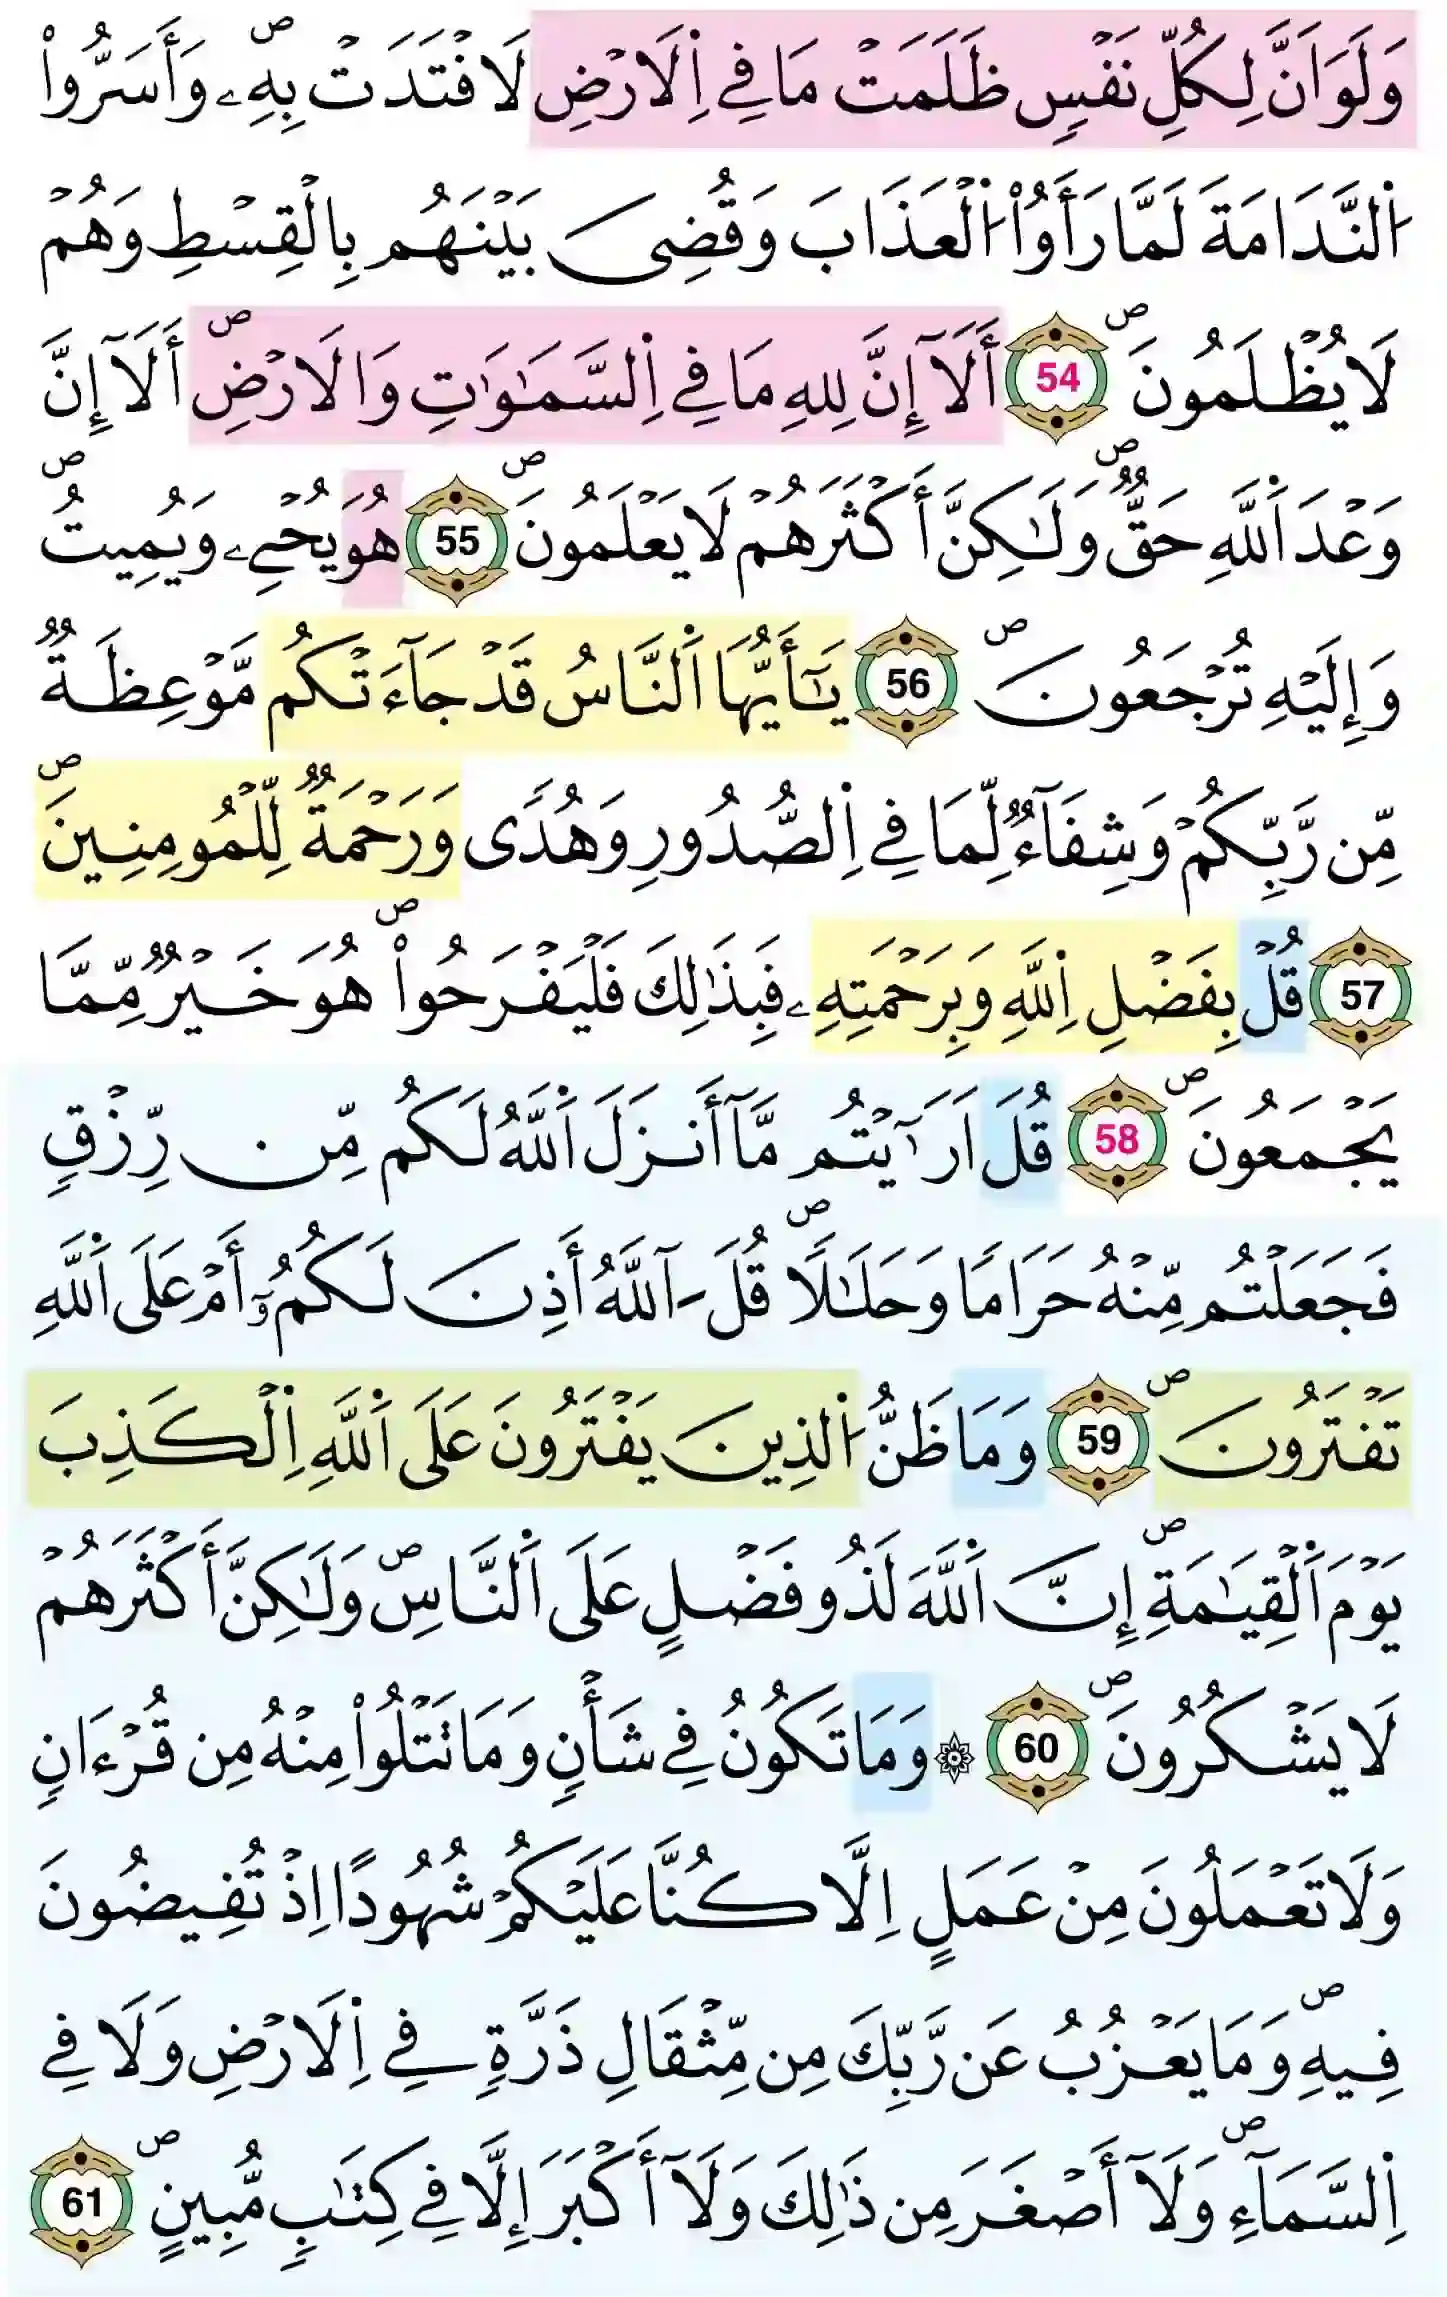 وَلَوَ اَنَّ لِكُلِّ نَفْسٖ ظَلَمَتْ مَا فِے اِ۬لَارْضِ لَافْتَدَتْ بِهِۦۖ وَأَسَرُّواْ
اُ۬لنَّدَامَةَ لَمَّا رَأَوُاْ اُ۬لْعَذَابَ وَقُضِىَ بَيْنَهُم بِالْقِسْطِ وَهُمْ
لَا يُظْلَمُونَۖ 54 أَلَآ إِنَّ لِلهِ مَا فِے اِ۬لسَّمَٰوَٰتِ وَالَارْضِۖ أَلَآ إِنَّ
وَعْدَ اَ۬للَّهِ حَقّٞۖ وَلَٰكِنَّ أَكْثَرَهُمْ لَا يَعْلَمُونَۖ 55 هُوَ يُحْيِۦ وَيُمِيتُۖ
وَإِلَيْهِ تُرْجَعُونَۖ 56 يَٰٓأَيُّهَا اَ۬لنَّاسُ قَدْ جَآءَتْكُم مَّوْعِظَةٞ
مِّن رَّبِّكُمْ وَشِفَآءٞ لِّمَا فِے اِ۬لصُّدُورِ وَهُدٗى وَرَحْمَةٞ لِّلْمُومِنِينَۖ
57 قُلْ بِفَضْلِ اِ۬للَّهِ وَبِرَحْمَتِهِۦ فَبِذَٰلِكَ فَلْيَفْرَحُواْۖ هُوَ خَيْرٞ مِّمَّا
يَجْمَعُونَۖ 58 قُلَ اَرَٰٓيْتُم مَّآ أَنزَلَ اَ۬للَّهُ لَكُم مِّن رِّزْقٖ
فَجَعَلْتُم مِّنْهُ حَرَامٗا وَحَلَٰلٗاۖ قُلَ ـآللَّهُ أَذِنَ لَكُمُۥٓ أَمْ عَلَى اَ۬للَّهِ
تَفْتَرُونَۖ 59 وَمَا ظَنُّ اُ۬لذِينَ يَفْتَرُونَ عَلَى اَ۬للَّهِ اِ۬لْكَذِبَ
يَوْمَ اَ۬لْقِيَٰمَةِۖ إِنَّ اَ۬للَّهَ لَذُو فَضْلٍ عَلَى اَ۬لنَّاسِۖ وَلَٰكِنَّ أَكْثَرَهُمْ
لَا يَشْكُرُونَۖ 60 ۞ وَمَا تَكُونُ فِے شَأْنٖ وَمَا تَتْلُواْ مِنْهُ مِن قُرْءَانٖ
وَلَا تَعْمَلُونَ مِنْ عَمَلٍ اِلَّا كُنَّا عَلَيْكُمْ شُهُودًا اِذْ تُفِيضُونَ
فِيهِۖ وَمَا يَعْزُبُ عَن رَّبِّكَ مِن مِّثْقَالِ ذَرَّةٖ فِے اِ۬لَارْضِ وَلَا فِے
اِ۬لسَّمَآءِۖ وَلَآ أَصْغَرَ مِن ذَٰلِكَ وَلَآ أَكْبَرَ إِلَّا فِے كِتَٰبٖ مُّبِينٍۖ 61